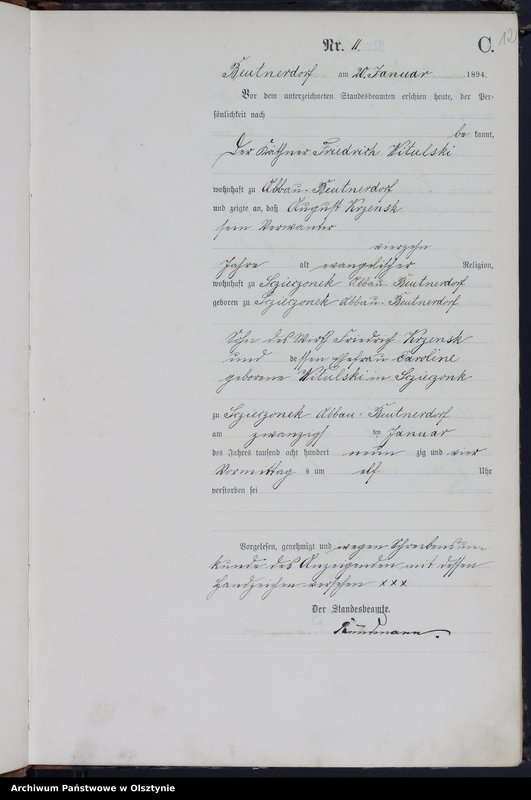 12
Nr. 11. C.
Beutnerdorf am 20. Januar 1894.
Vor dem unterzeichneten Standesbeamten erschien heute, der Per-
sönlichkeit nach
be kannt,
Der Käthner Friedrich Witulski
wohnhaft zu Abbau-Beutnerdorf
und zeigte an, daß August Krzensk
sein Verwanter
vierzehn
Jahre alt evangelischer Religion,
wohnhaft zu Szieczonek Abbau-Beutnerdorf
geboren zu Szieczonek Abbau-Beutnerdorf
Sohn des Wirth Friedrich Krzensk
und dessen Ehefrau Caroline
geborene Witulski in Sziezonk
zu Sziersonek Abbau-Beutnerdorf
am zwanzigs ten Januar
des Jahres tausend acht hundert neun zig und vier
Vormittag s um elf Uhr
verstorben sei
Vorgelesen, genehmigt und wegen Schreibensun-
kunde des Anzeigenden mit dessen
Handzeichen versehen xxx
Der Standesbeamte.
Archiwum Państwowe w Olsztynie